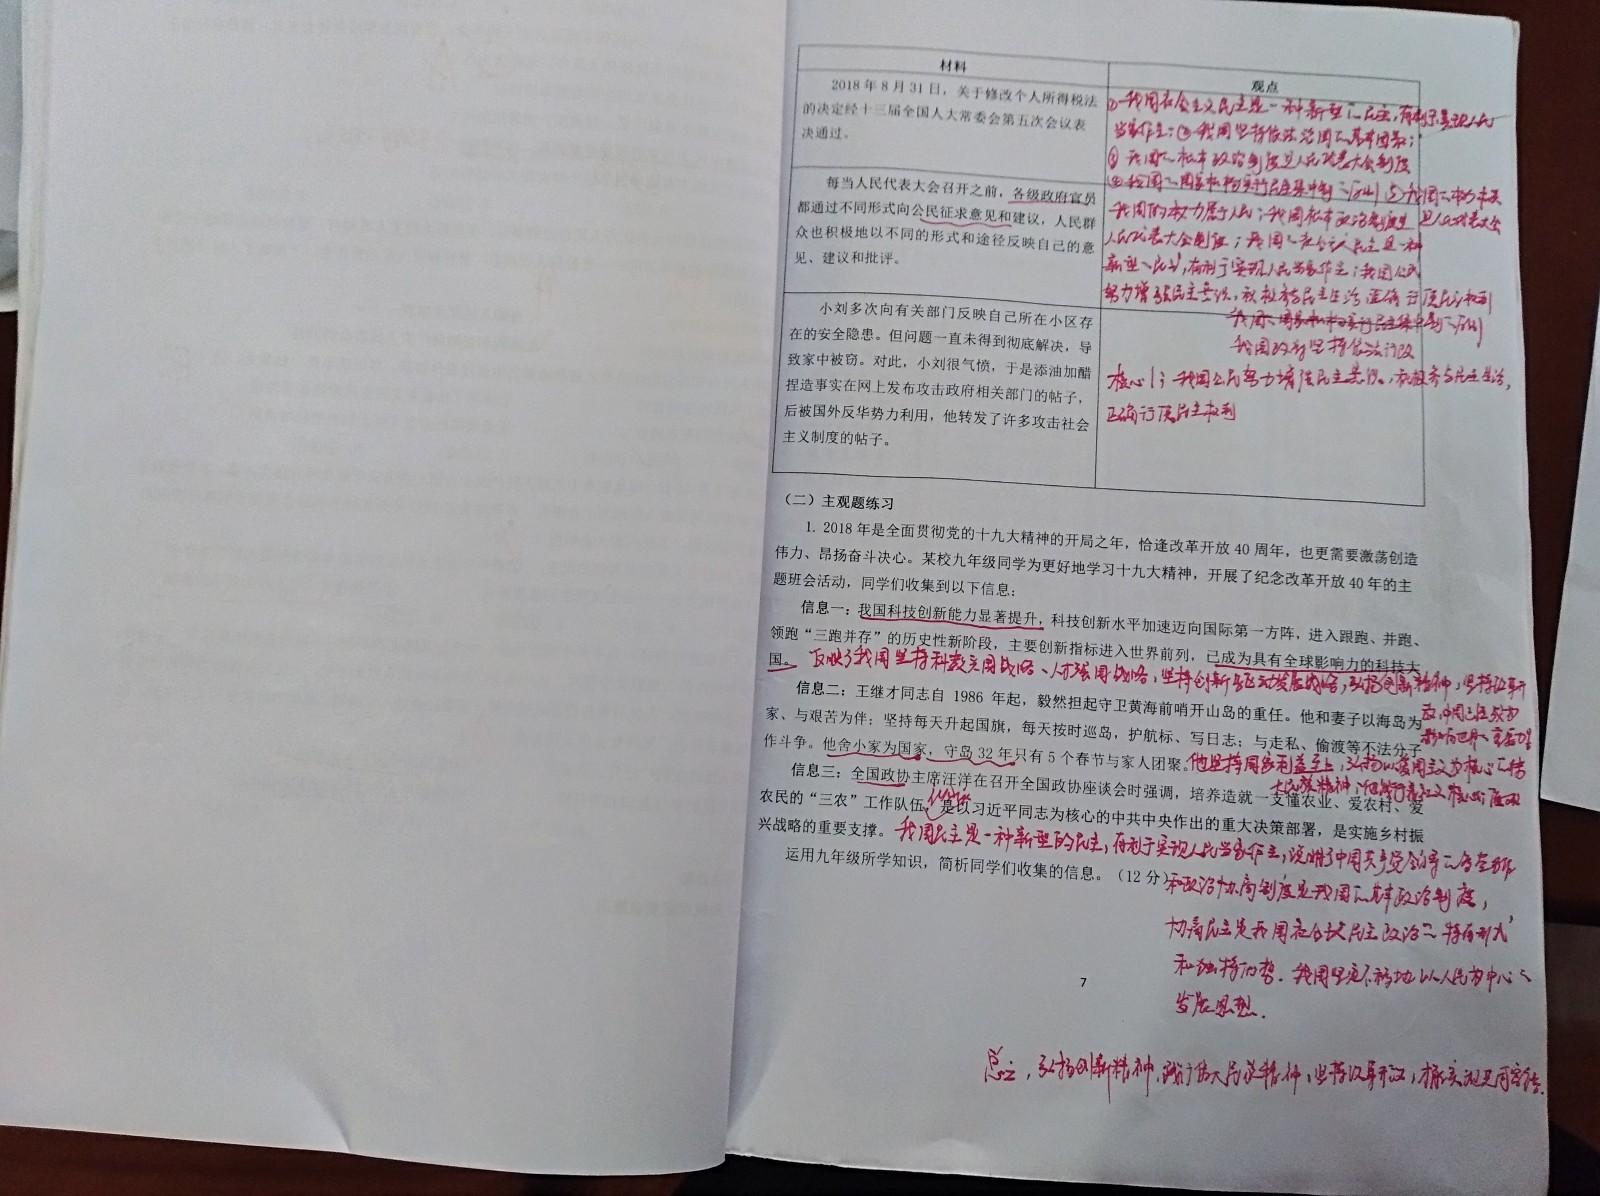 材料
观点
2018年8月31日，关于修改个人所得税法
的决定经十三届全国人大常委会第五次会议表
决通过。
①我国社会主义民主是一种新型的民主，有利于实现人民
当家作主；②我国坚持依法治国的基本国策；
③我国的根本政治制度是人民代表大会制度
④我国的国家机构实行民主集中制的原则
每当人民代表大会召开之前，各级政府官员
都通过不同形式向公民征求意见和建议，人民群
众也积极地以不同的形式和途径反映自己的意
见、建议和批评。
我国的权力属于人民；我国根本政治制度是
人民代表大会制度；我国的社会主义民主是一种
新型的民主，有利于实现人民当家作主；我国公民
努力增强民主意识，积极参与民主生活，正确行使民主权利
我国的国家机构实行民主集中制的原则
我国政府坚持依法行政
小刘多次向有关部门反映自己所在小区存
在的安全隐患。但问题一直未得到彻底解决，导
致家中被窃。对此，小刘很气愤，于是添油加醋
捏造事实在网上发布攻击政府相关部门的帖子，
后被国外反华势力利用，他转发了许多攻击社会
主义制度的帖子。
核心：我国公民努力增强民主意识。积极参与民主生活，
正确行使民主权利
（二）主观题练习
1. 2018年是全面贯彻党的十九大精神的开局之年，恰逢改革开放40周年，也更需要激荡创造
伟力、昂扬奋斗决心。某校九年级同学为更好地学习十九大精神，开展了纪念改革开放40年的主
题班会活动，同学们收集到以下信息：
信息一：我国科技创新能力显著提升，科技创新水平加速迈向国际第一方阵，进入跟跑、并跑、
领跑“三跑并存”的历史性新阶段，主要创新指标进入世界前列，已成为具有全球影响力的科技大
国。
反映了我国坚持科教兴国战略、人才强国战略，坚持创新驱动发展战略，弘扬创新精神，坚持改革开
放，中国已经成为
影响世界的重要力量
信息二：王继才同志自1986年起，毅然担起守卫黄海前哨开山岛的重任。他和妻子以海岛为
家、与艰苦为伴；坚持每天升起国旗，每天按时巡岛，护航标、写日志；与走私、偷渡等不法分子
作斗争。他舍小家为国家，守岛32年只有5个春节与家人团聚。
他坚持国家利益至上，弘扬以爱国主义为核心的伟
大民族精神；他践行社会主义核心价值观
信息三：全国政协主席汪洋在召开全国政协座谈会时强调，培养造就一支懂农业、爱农村、爱
农民的“三农”工作队伍，是以习近平同志为核心的中共中央作出的重大决策部署，是实施乡村振
兴战略的重要支撑。
我国民主是一种新型的民主，有利于实现人民当家作主，说明了中国共产党领导的多党合作
和政治协商制度是我国的基本政治制度，
协商民主是我国社会主义民主政治的特有形式
和独特优势．我国坚定不移地以人民为中心的
发展思想．
运用九年级所学知识，简析同学们收集的信息。（12分）
7
总之，弘扬创新精神，践行伟大民族精神，坚持改革开放，